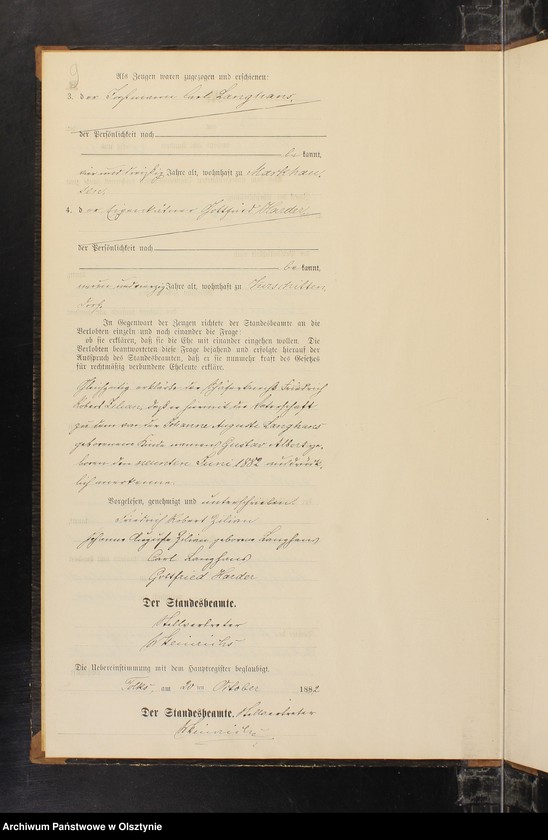 9
Als Zeugen waren zugezogen und erschienen:
3. der Carl Langhans,
der Persönlichkeit nach
be kannt,
Jahre alt, wohnhaft zu Markhau-
sen
4. der Eigenkäthner Gottfried Harder
der Persönlichkeit nach
be kannt,
Jahre alt, wohnhaft zu
dorf.
In Gegenwart der Zeugen richtete der Standesbeamte an die
Verlobten einzeln und nach einander die Frage:
ob sie erklären, daß sie die Ehe mit einander eingehen wollen. Die
Verlobten beantworteten diese Frage bejahend und erfolgte hierauf der
Ausspruch des Standesbeamten, daß er sie nunmehr kraft des Gesetzes
für rechtmäßig verbundene Eheleute erkläre.
Gleichzeitig erklärte der Friedrich
Robert Zilian, daß er hiermit die Vaterschaft
zu dem von der Johanne Auguste Langhans
geborenen Kinde namens Gustav Albert ge-
boren den neunten Juni 1882 ausdrück-
lich anerkenne.
Vorgelesen, genehmigt und unterschrieben
Friedrich Robert Zilian
Johanne Auguste Zilian geborene Langhans
Carl Langhans
Gottfried Harder
Der Standesbeamte.
Stellvertreter
Heinrichs
Die Uebereinstimmung mit dem Hauptregister beglaubigt.
Tolks, am 20ten October 1882
Der Standesbeamte. Stellvertreter
Heinrichs
Archiwum Państwowe w Olsztynie